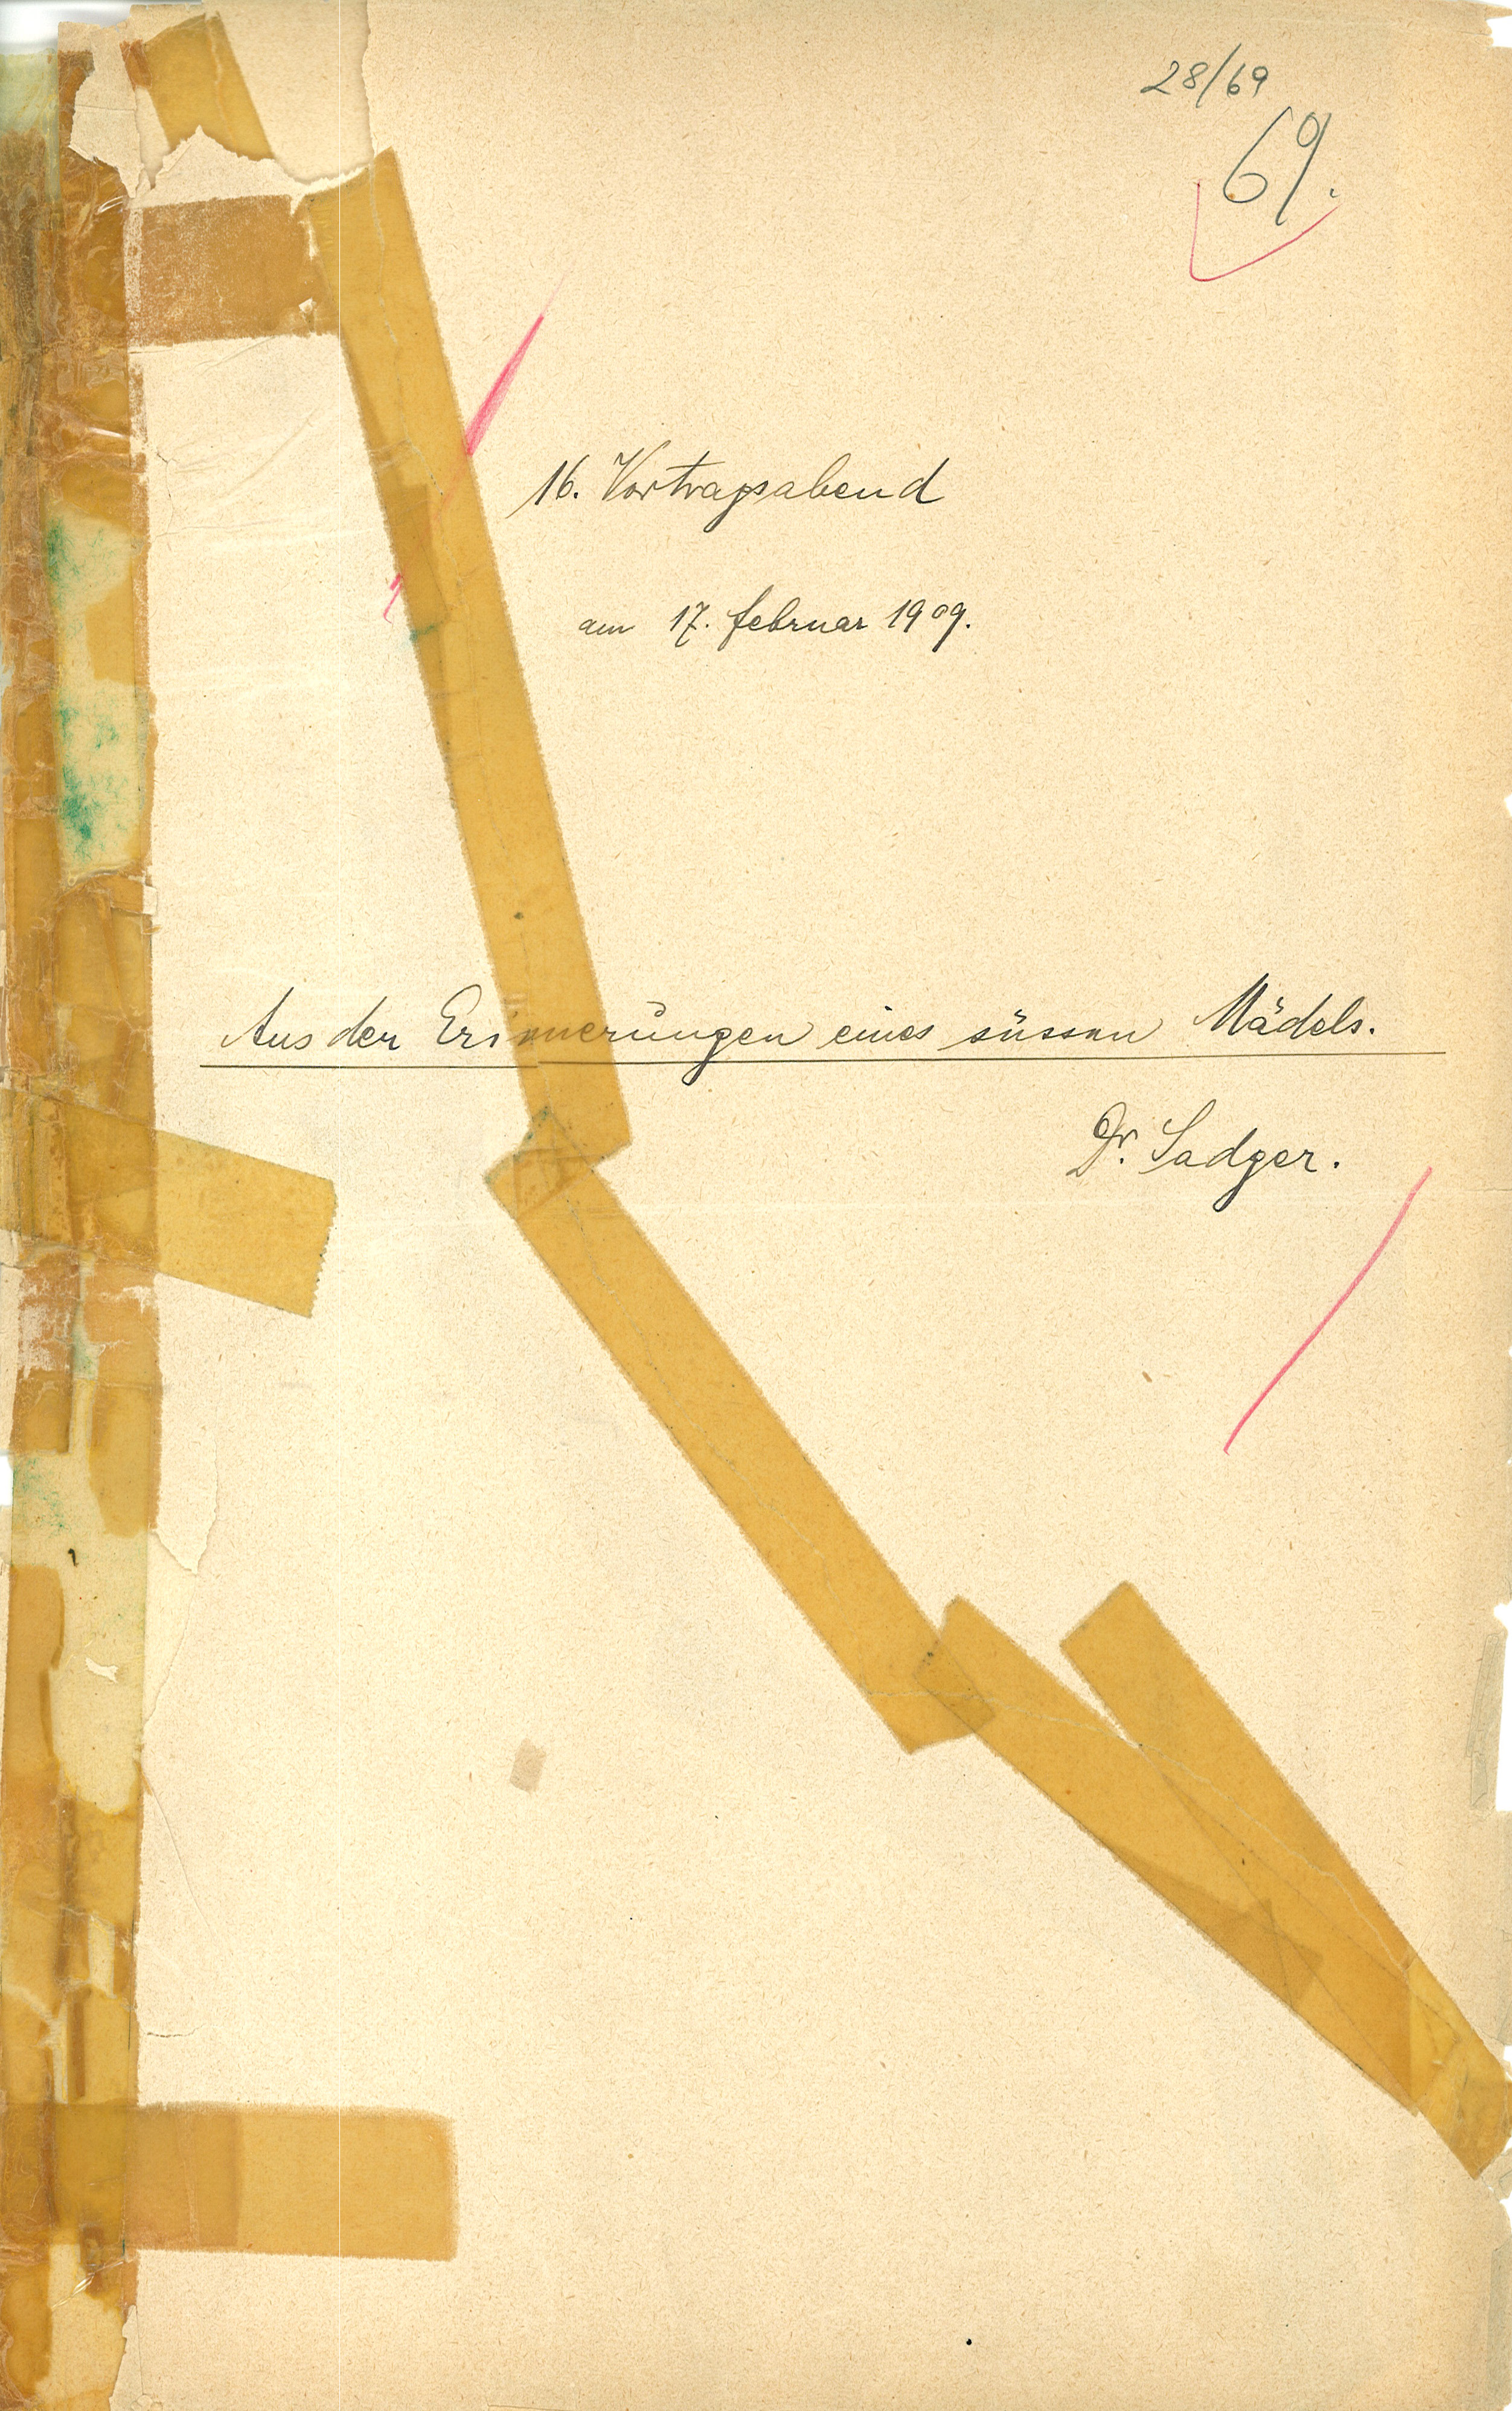 28/69
69.
16. Vortragsabend
am 17. februar 1909.
Aus der Erinnerungen eines süssen Mädels.
Dr. Sadger.